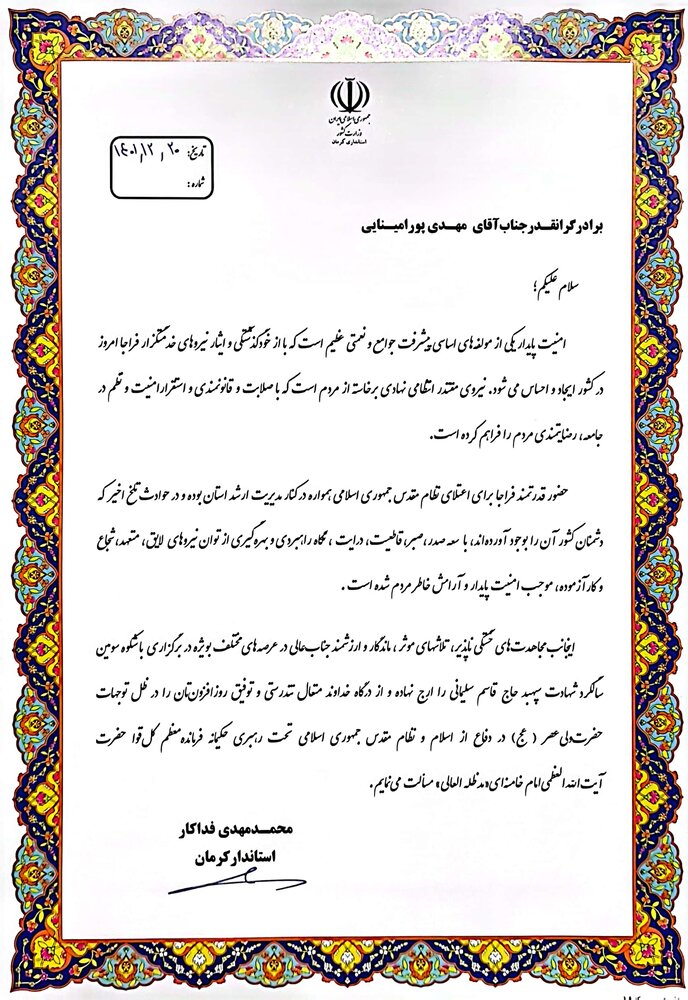 جمهوری اسلامی ایران
وزارت کشور
استانداری کرمان
تاریخ: ۱۴۰۱/۱۲/۲۰
شماره:
برادر گرانقدر جناب آقای مهدی پورامینایی
سلام علیکم؛
امنیت پایدار یکی از مولفه‌های اساسی پیشرفت جوامع و نعمتی عظیم است که با از خودگذشتگی و ایثار نیروهای خدمتگزار فراجا امروز
در کشور ایجاد و احساس می شود. نیروی مقتدر انتظامی نهادی برخاسته از مردم است که با صلابت و قانونمندی و استقرار امنیت و نظم در
جامعه، رضایتمندی مردم را فراهم کرده است.
حضور قدرتمند فراجا برای اعتلای نظام مقدس جمهوری اسلامی همواره در کنار مدیریت ارشد استان بوده و در حوادث تلخ اخیر که
دشمنان کشور آن را بوجود آورده‌اند، با سعه صدر، صبر، قاطعیت، درایت ، نگاه راهبردی و بهره گیری از توان نیروهای لایق، متعهد، شجاع
و کارآزموده، موجب امنیت پایدار و آرامش خاطر مردم شده است .
اینجانب مجاهدت‌های خستگی ناپذیر، تلاشهای موثر ، ماندگار و ارزشمند جنابعالی در عرصه‌های مختلف بویژه در برگزاری باشکوه سومین
سالگرد شهادت سپهبد حاج قاسم سلیمانی را ارج نهاده و از درگاه خداوند متعال تندرستی و توفیق روزافزون‌تان را در ظل توجهات
حضرت ولی عصر (عج) در دفاع از اسلام و نظام مقدس جمهوری اسلامی تحت رهبری حکیمانه فرمانده معظم کل قوا حضرت
آیت الله العظمی امام خامنه‌ای«مدظله العالی» مسألت می‌نمایم.
محمدمهدی فداکار
استاندار کرمان